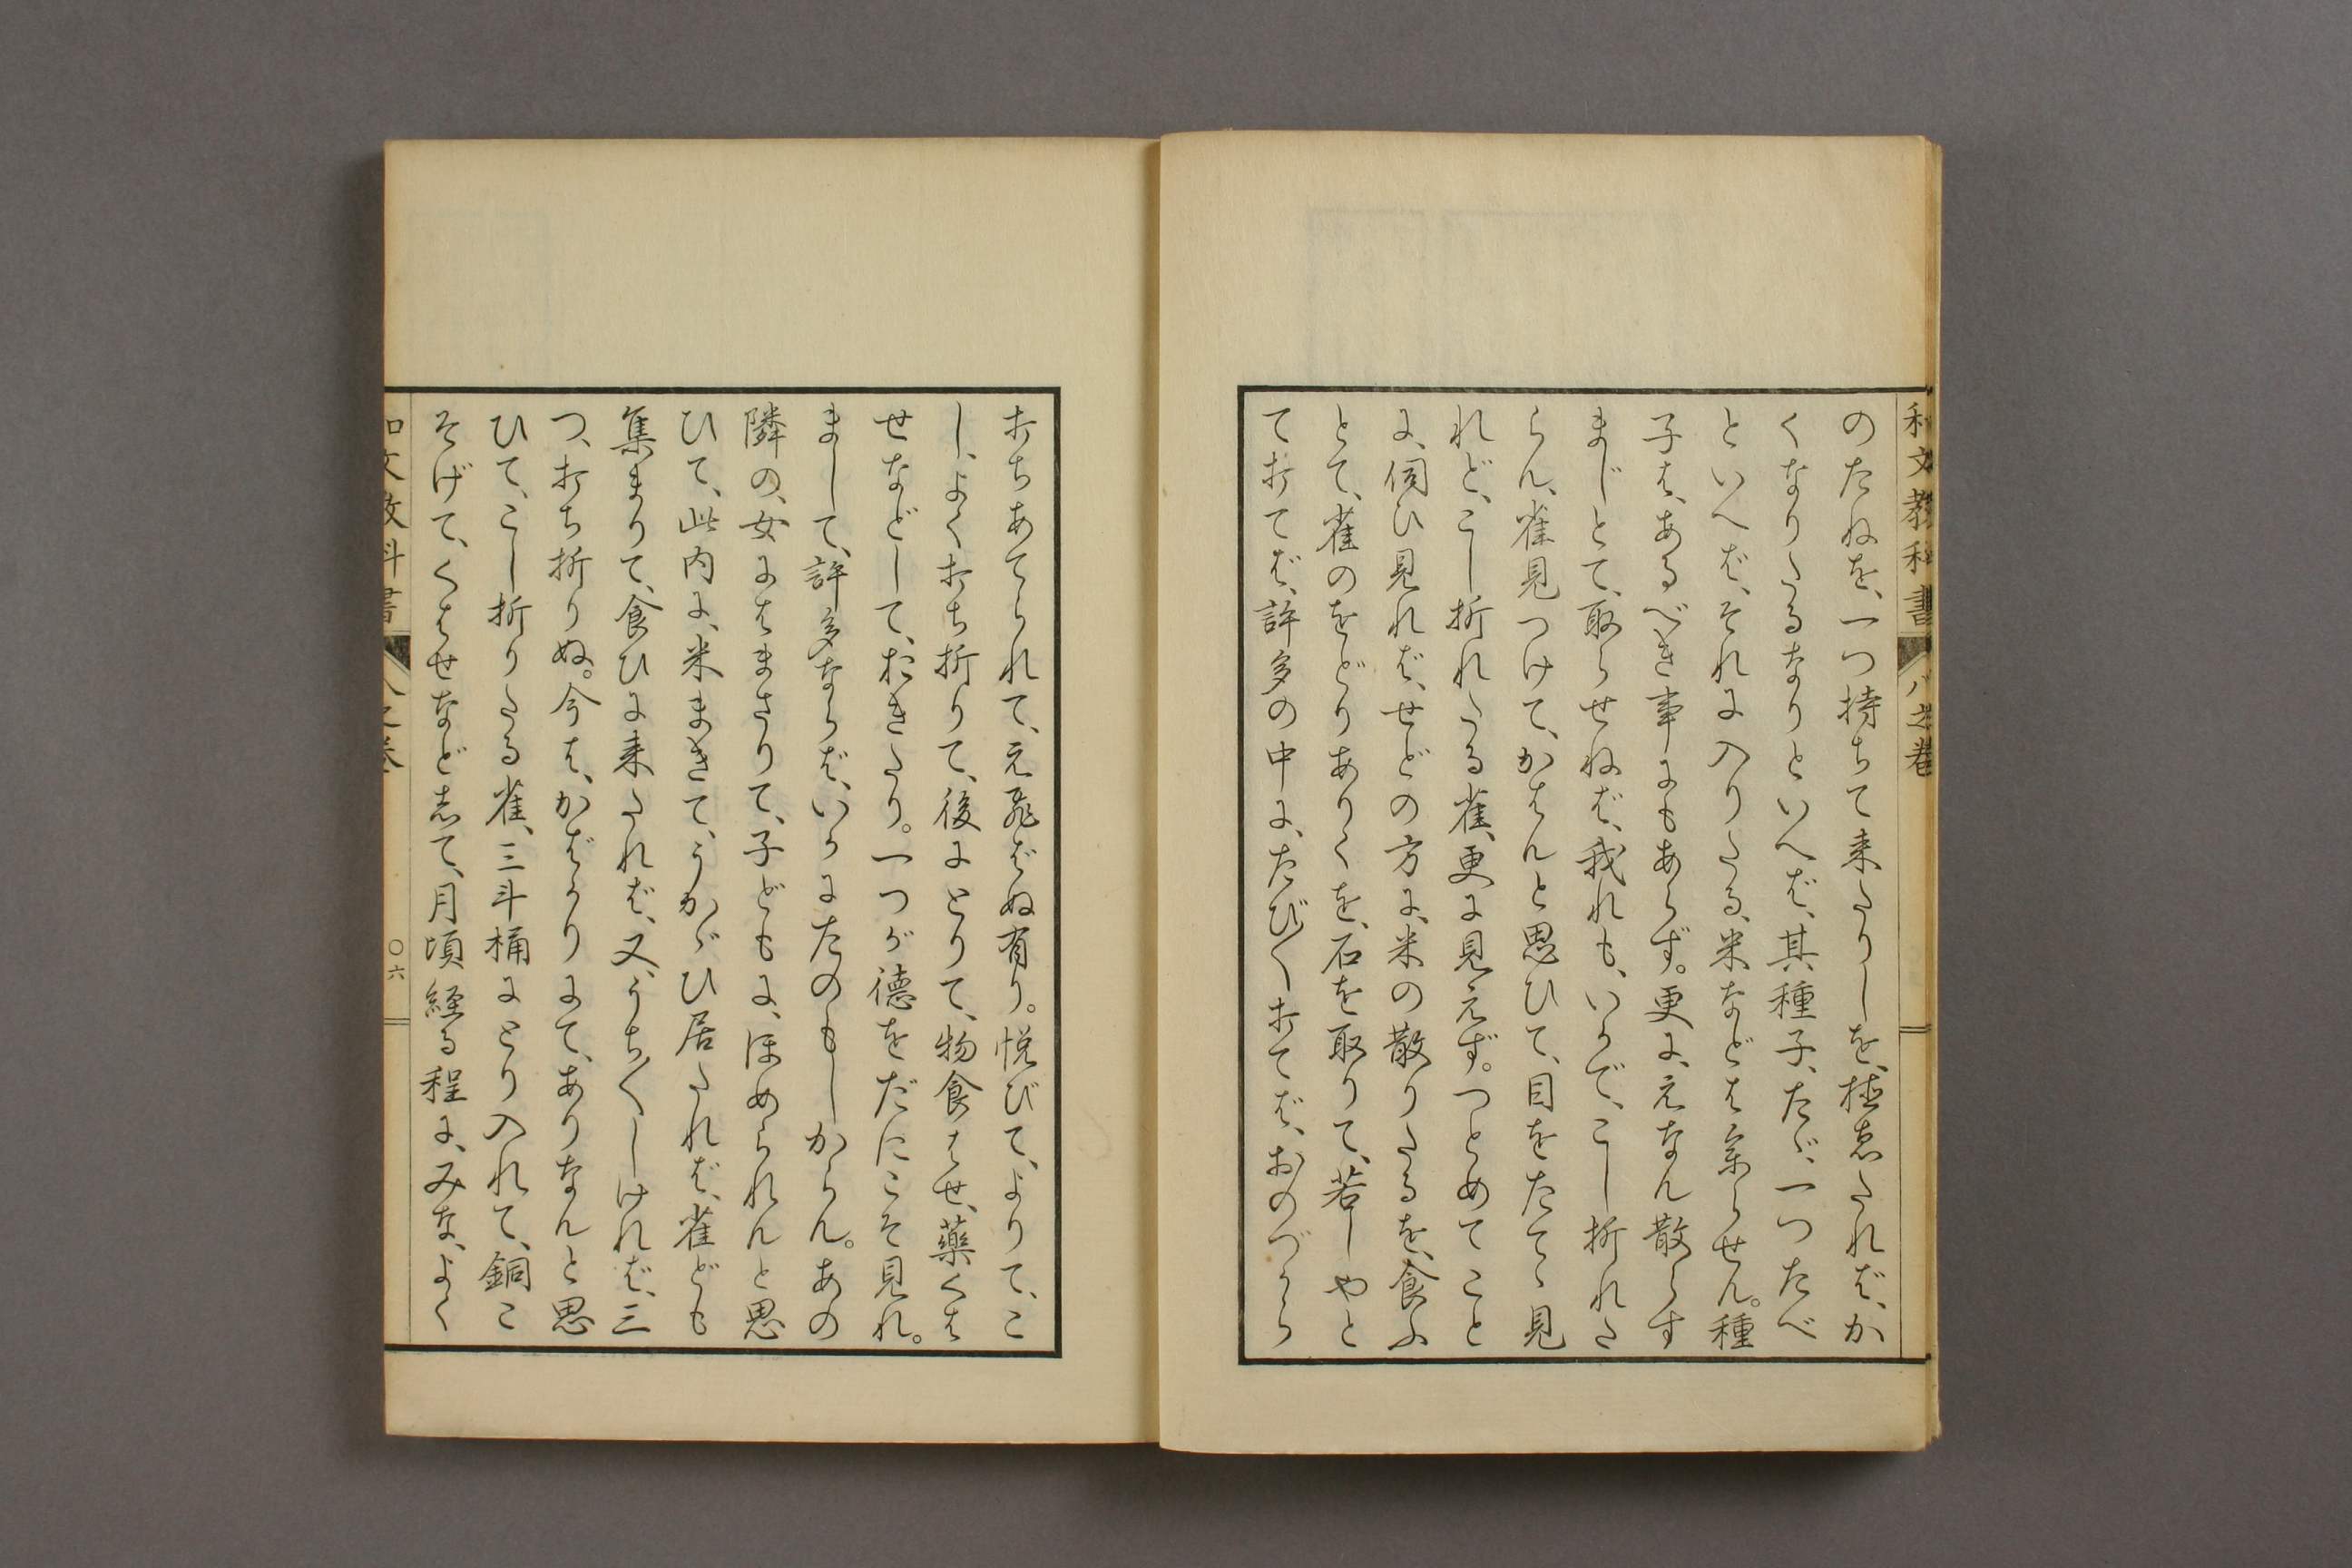 和文教科書 八之卷
のたねを、一つ持ちて来たりしを、植ゑたれば、か
くなりたるなりといへば、其種子、たゞ、一つたべ
といへば、それに入りたる、米などは参らせん。種
子は、あるべき事にもあらず。更に、えなん散らす
まじとて、取らせねば、我れも、いかで、こし折れた
らん、雀見つけて、かはんと思ひて、目をたてゝ見
れど、こし折れたる雀、更に見えず。つとめてこと
に、伺ひ見れば、せどの方に、米の散りたるを、食ふ
とて、雀のをどりありくを、石を取りて、若しやと
て打てば、許多の中に、たび〳〵打てば、おのづから
打ちあてられて、え飛ばぬ有り。悦びて、よりて、こ
し、よく打ち折りて、後にとりて、物食はせ、藥くは
せなどして、おきたり。一つが德をだにこそ見れ。
まして、許多ならば、いかにたのもしからん。あの
隣の、女にはまさりて、子どもに、ほめられんと思
ひて、此内に、米まきて、うかゞひ居たれば、雀ども
集まりて、食ひに来たれば、又、うち〳〵しければ、三
つ、打ち折りぬ。今は、かばかりにて、ありなんと思
ひて、こし折りたる雀、三斗桶にとり入れて、銅こ
そげて、くはせなど志て、月頃経る程に、みな、よく
和文教科書 八之卷 〇六